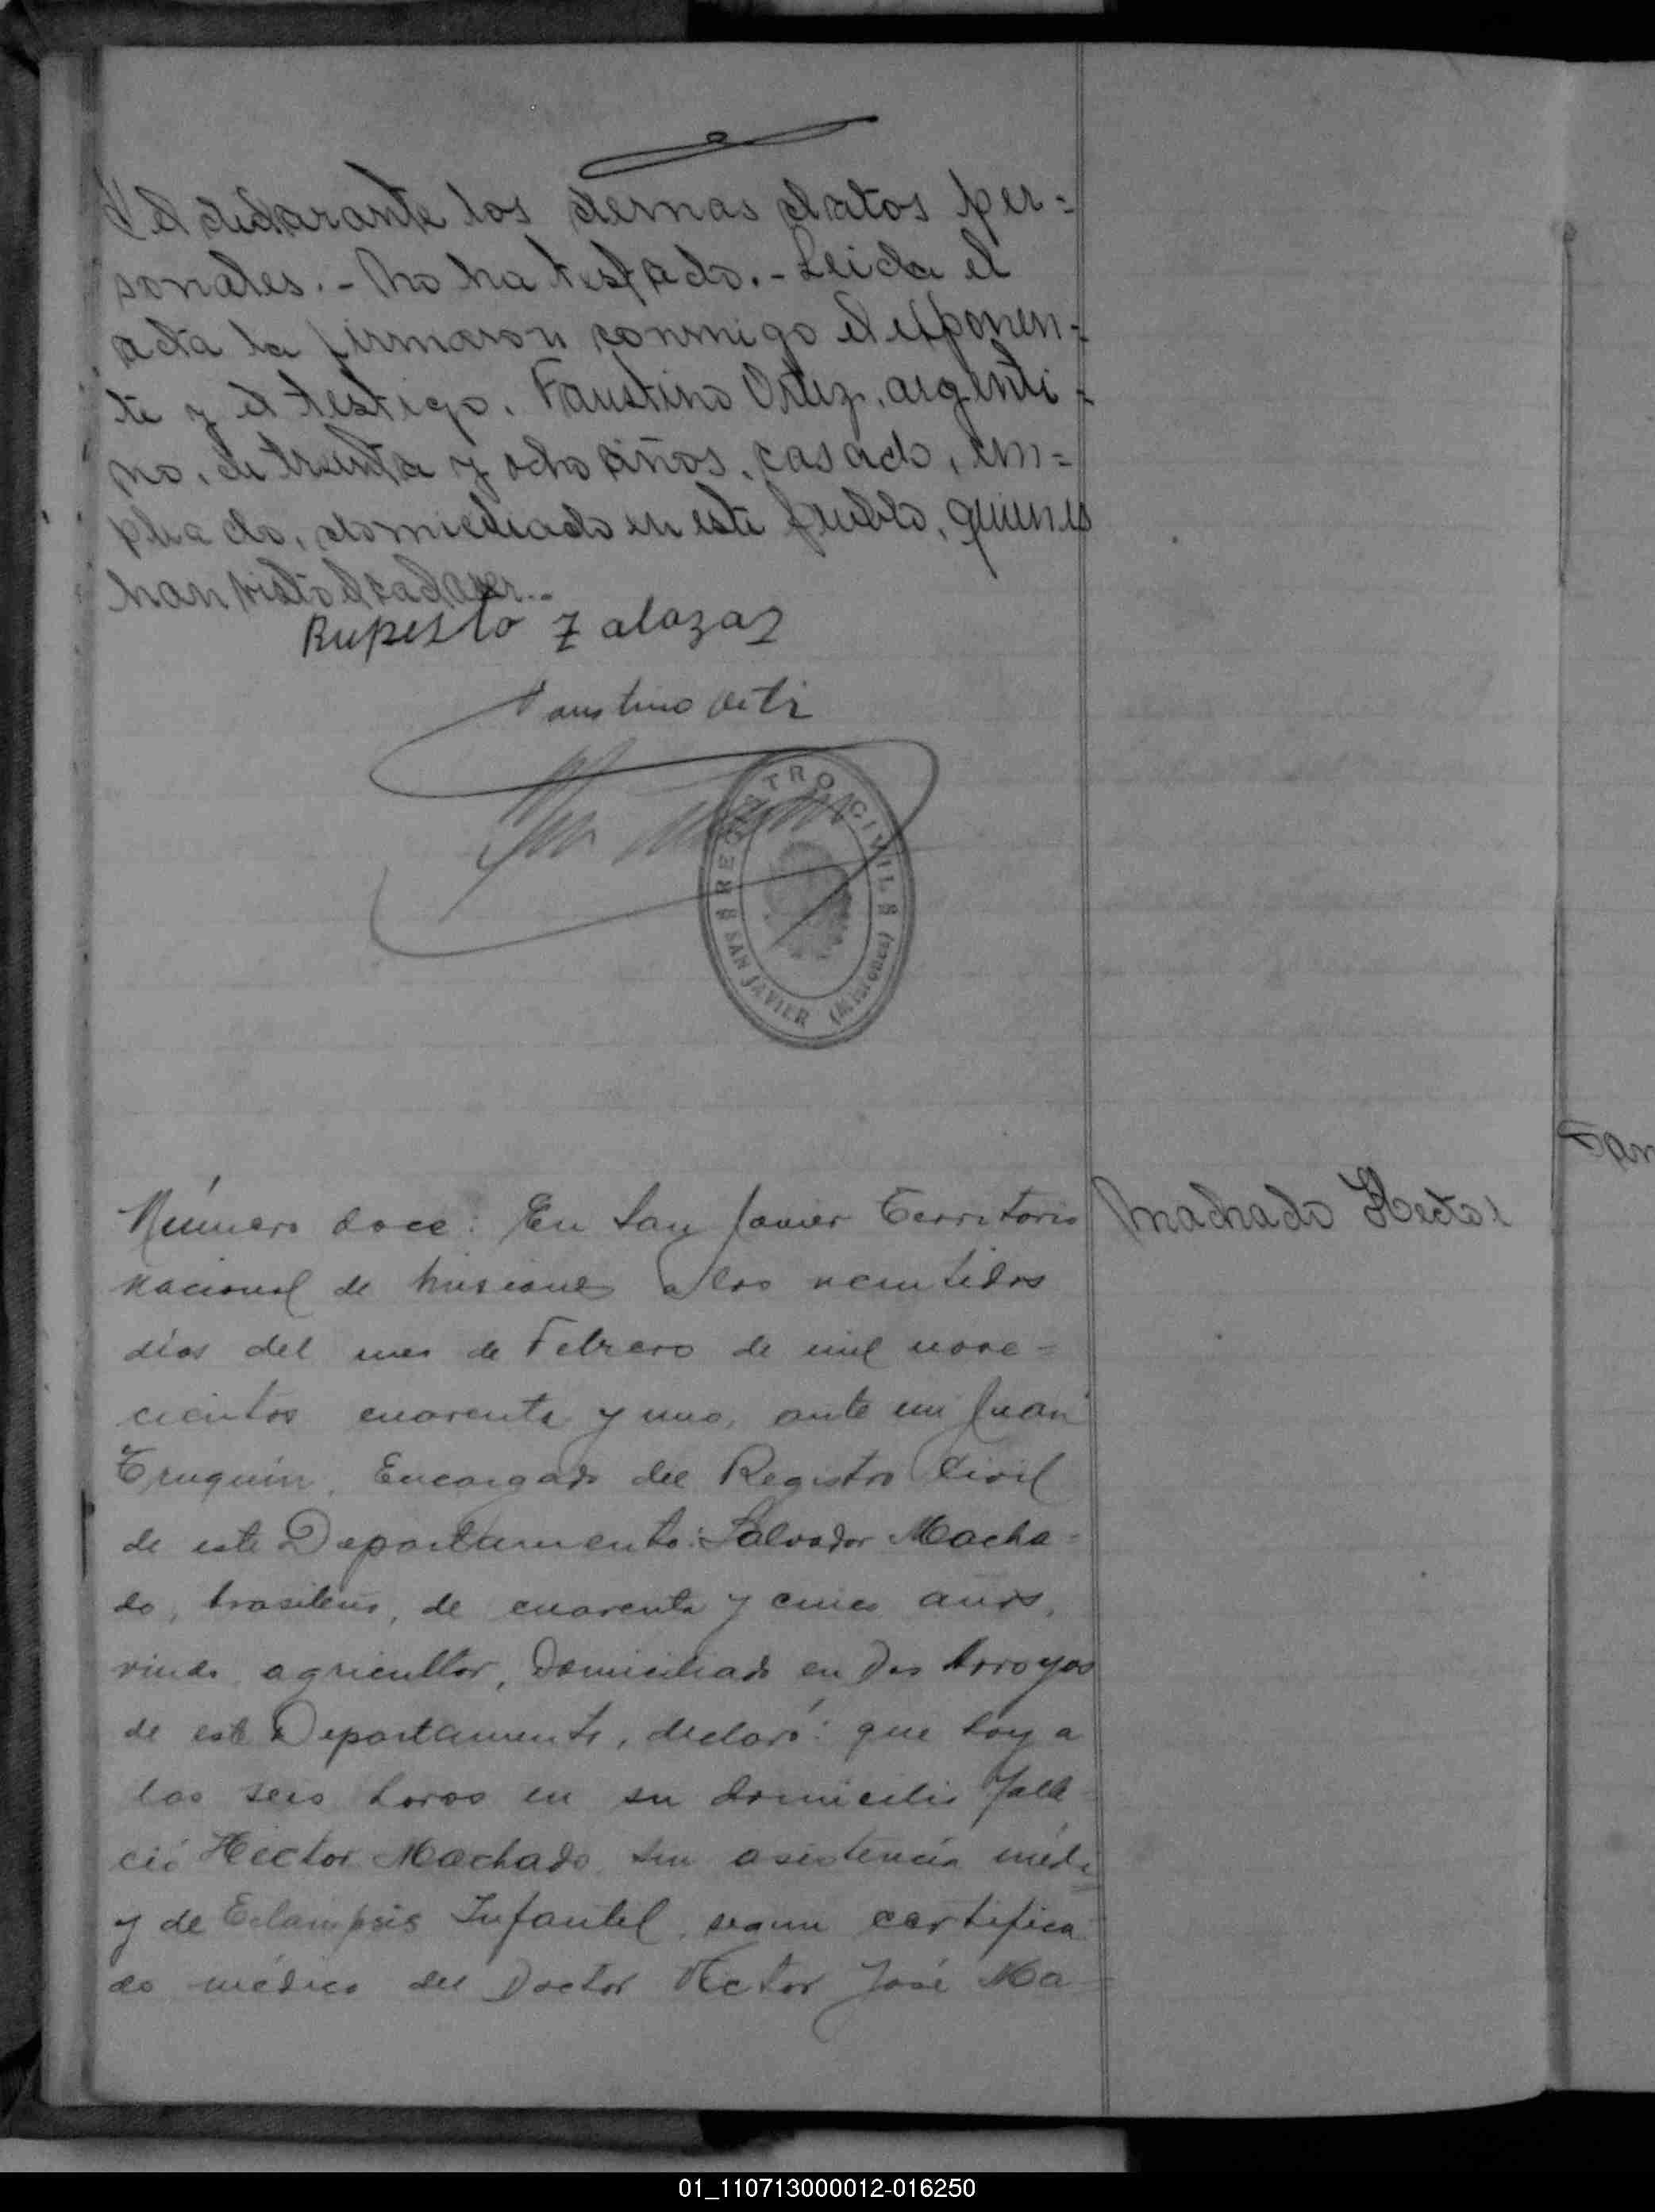 el declarante los demas datos per=
sonales.- No ha testado.- Leida el
acta la firmaron conmigo el exponen=
te y el testigo. Faustino Ortiz, argenti=
no, de treinta y ocho años, casado, em=
pleado, domiciliado en este pueblo, quienes
han visto el cadaver.-
Ruperto Zalazar
Faustino Ortiz
REGISTRO CIVIL
SAN JAVIER (Misiones)
Número doce: En San Javier Territorio
Nacional de Misiones a los veintidos
días del mes de Febrero de mil nove=
cientos cuarenta y uno, ante mi Juan
Truquin, Encargado del Registro Civil
de este Departamento: Salvador Macha-
do, brasileño, de cuarenta y cinco años,
viudo, agricultor, domiciliado en Dos Arroyos
de este Departamento, declaró: que hoy a
las seis horas en su domicilio falle
ció Hector Machado sin asistencia médi
y de Eclampsis Infantil, segun certifica
do médico del Doctor Victor José Ma=
Machado Hector
01_110713000012-016250